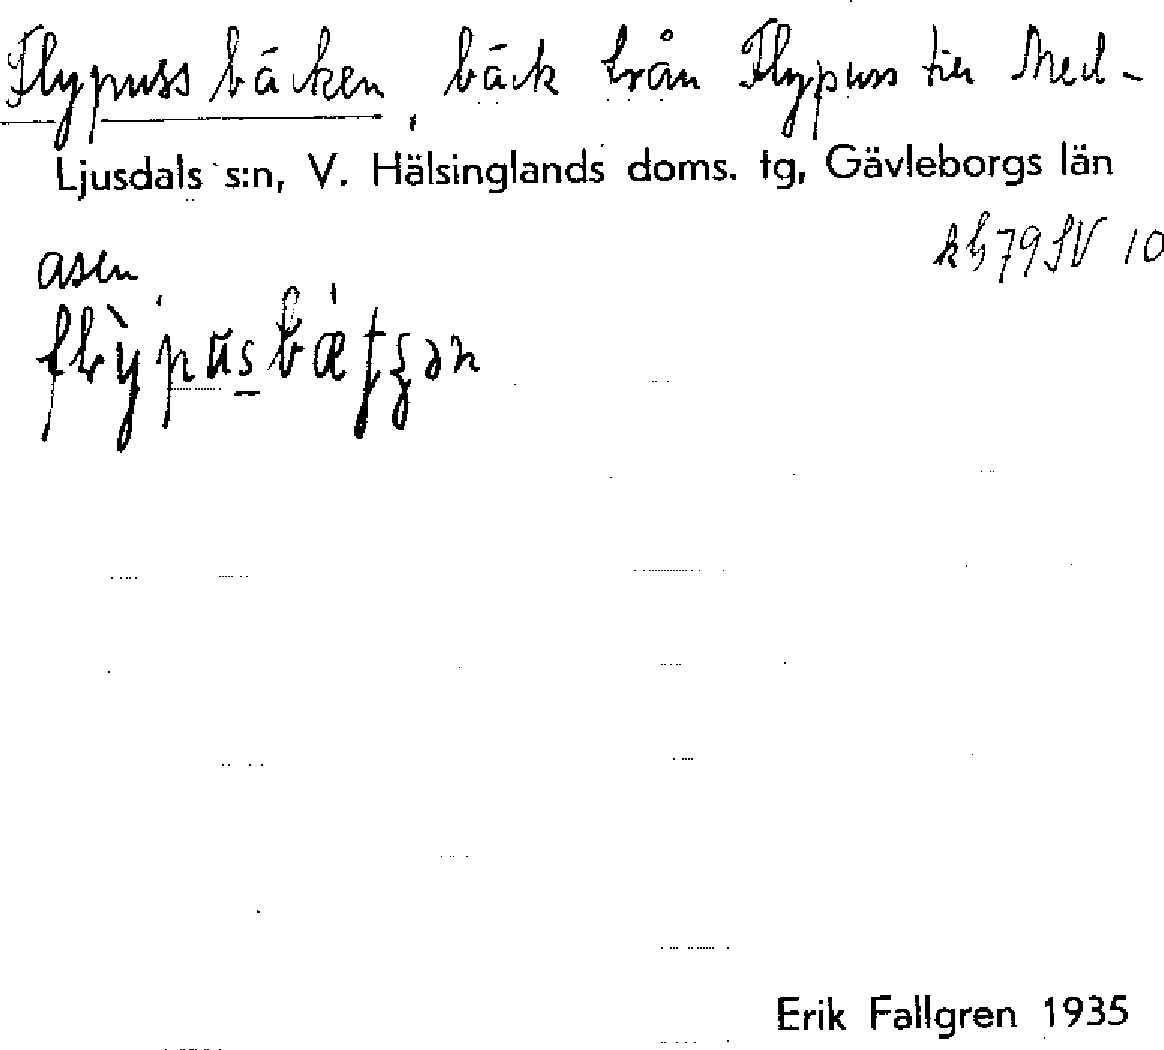 Flypussbäcken, bäck från Flypuss till Med-
Ljusdals s:n, V. Hälsinglands doms. tg, Gävleborgs län
asen
kb79SV 10
Erik Fallgren 1935